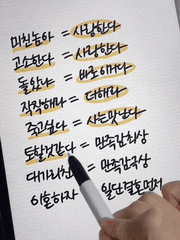 미친놈아 = 사랑한다
고소한다 = 사랑한다
돌았나 = 바로이거다
자작해라 = 더해라
죽고싶다 = 사는맛난다
토할것같다 = 만족감최상
대가리 = 만족감극상
이혼하자 일단결혼먼저